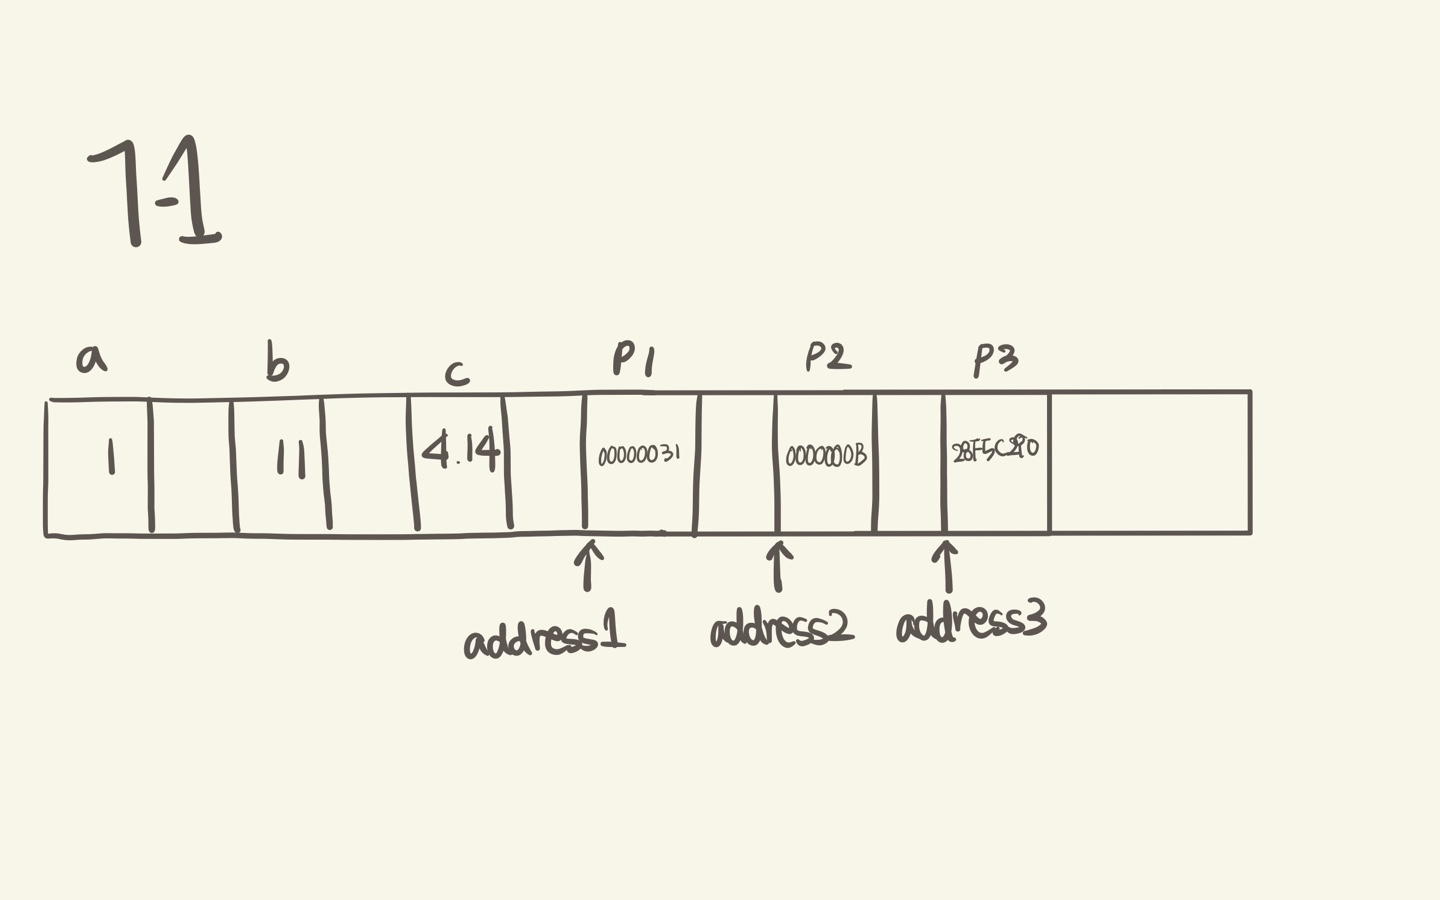 7-1
a b c P1 P2 P3
1 11 4.14 00000031 0000000B 28F5C290
address1 address2 address3